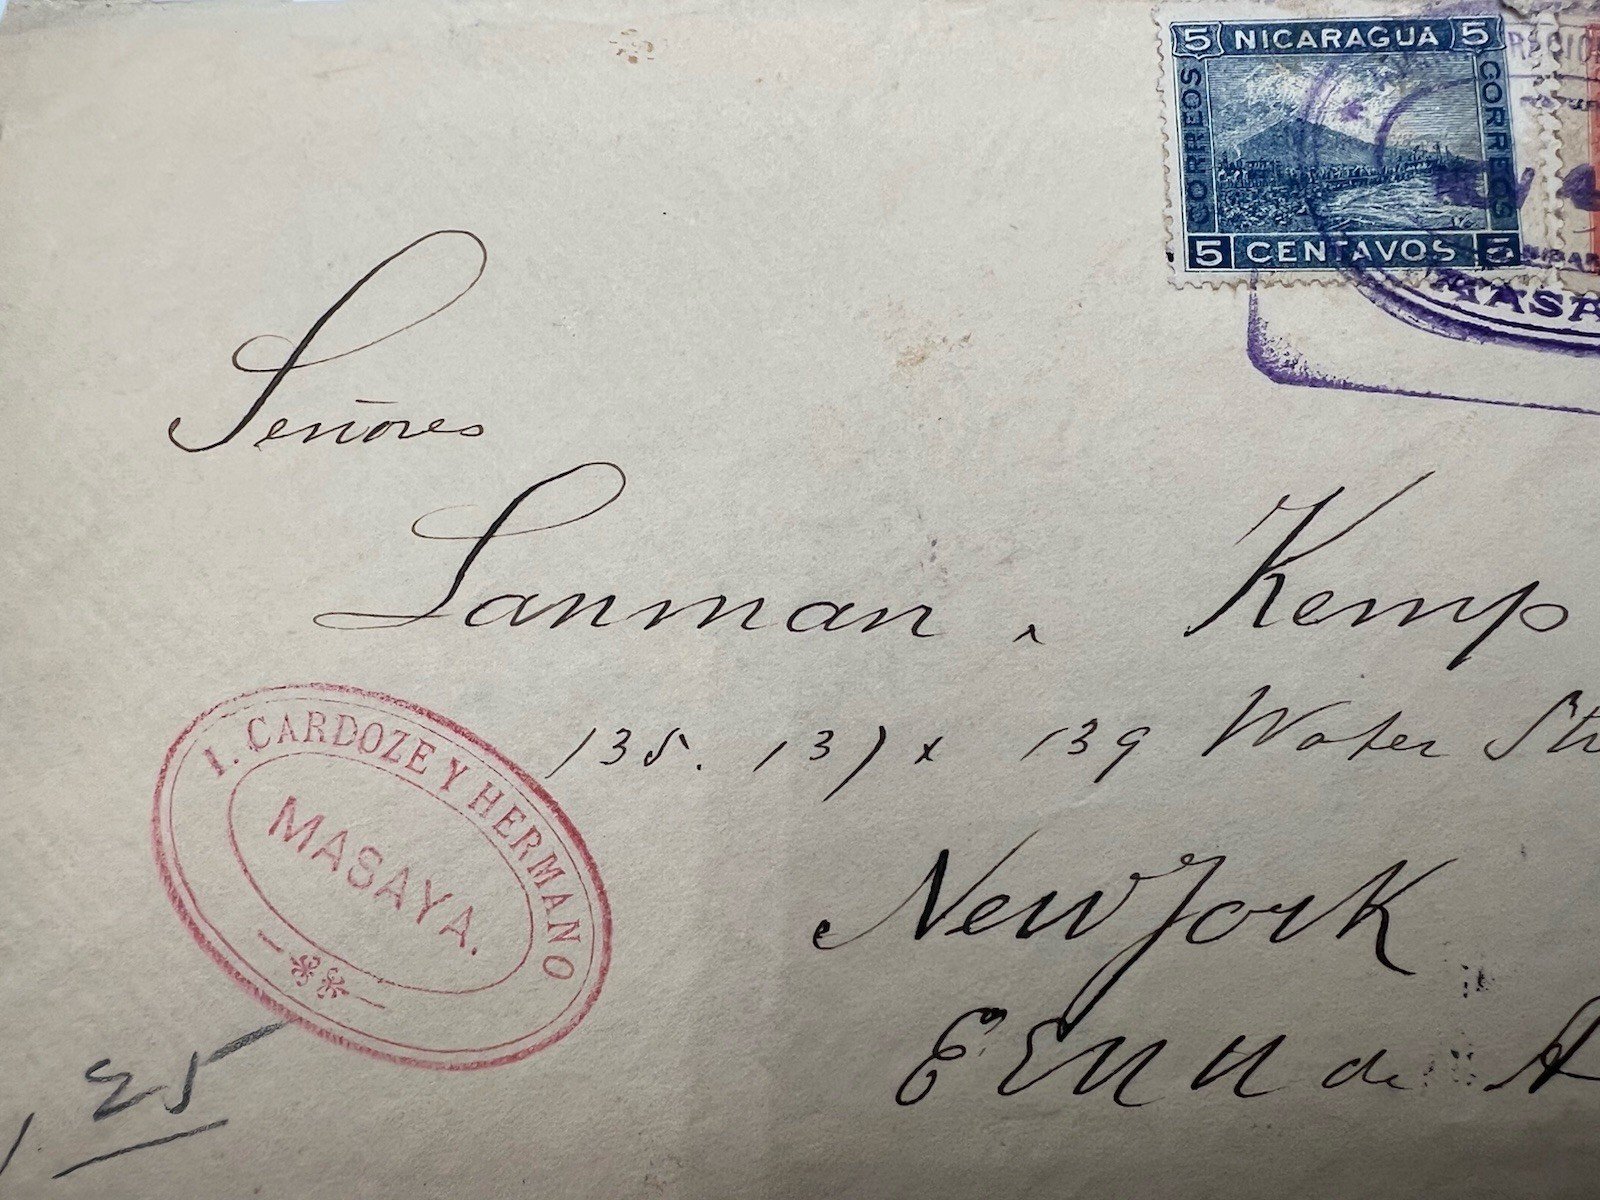 5 NICARAGUA 5
CORREOS
CORREOS
5 CENTAVOS 5
MASA
Señores
Lanman, Kemp
135. 137 x 139 Water Str
New York
E E U U de A
I. CARDOZE Y HERMANO
MASAYA.